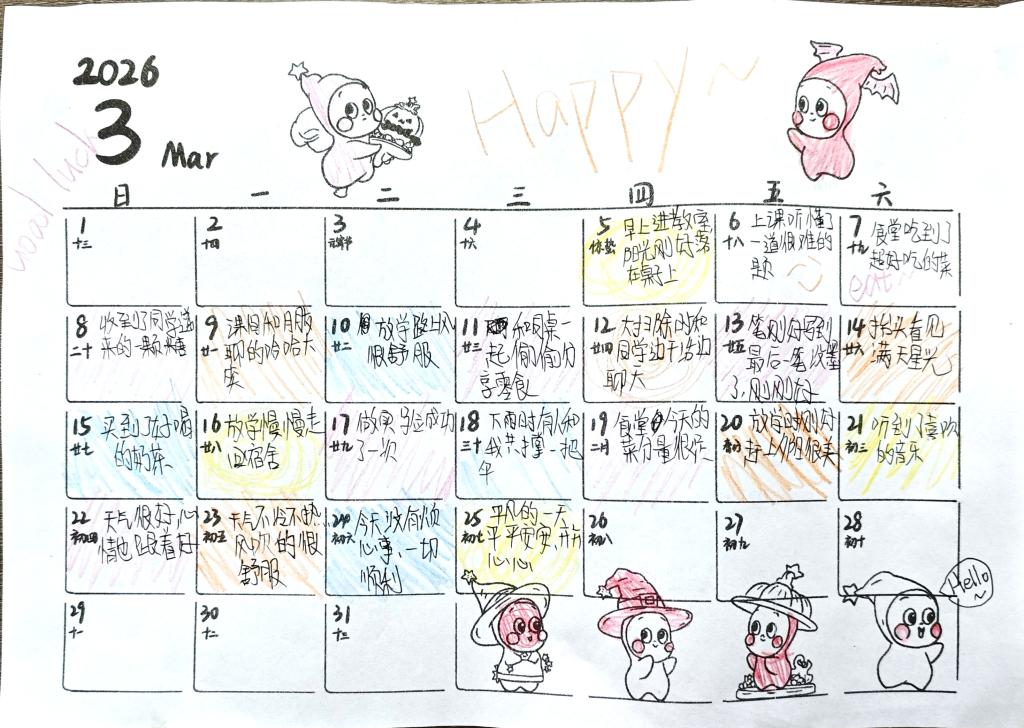 2026
3 Mar
Good luck
Happy~
日 一 二 三 四 五 六
1
十三
2
十四
3
元宵节
4
十六
5
惊蛰
早上进教室
阳光刚好落
在桌子上
6
十八
上课听懂了
一道很难的
题
7
十九
食堂吃到了
超好吃的菜
eat
8
二十
收到了同学送
来的一颗糖
9
廿一
课间和朋友
聊的哈哈大
笑
10
廿二
放学路上风
很舒服
11
廿三
和同桌一
起偷偷分
享零食
12
廿四
大扫除时和
同学边干活边
聊天
13
廿五
笔刚好写到
最后一笔没墨
了,刚刚好
14
廿六
抬头看见
满天星光
15
廿七
买到了好喝
的奶茶
16
廿八
放学慢慢走
回宿舍
17
廿九
做实验成功
了一次
18
三十
下雨时有人和
我共撑一把
伞
19
二月
食堂今天的
菜分量很欢
20
春分
放学时刚好
赶上夕阳很美
21
初三
听到了喜欢
的音乐
22
初四
天气很好,心
情也跟着好
23
初五
天气不冷不热
风吹的很
舒服
24
初六
今天没有烦
心事、一切
顺利
25
初七
平凡的一天
平平安安、开开
心心
26
初八
27
初九
28
初十
Hello
~
29
十一
30
十二
31
十三